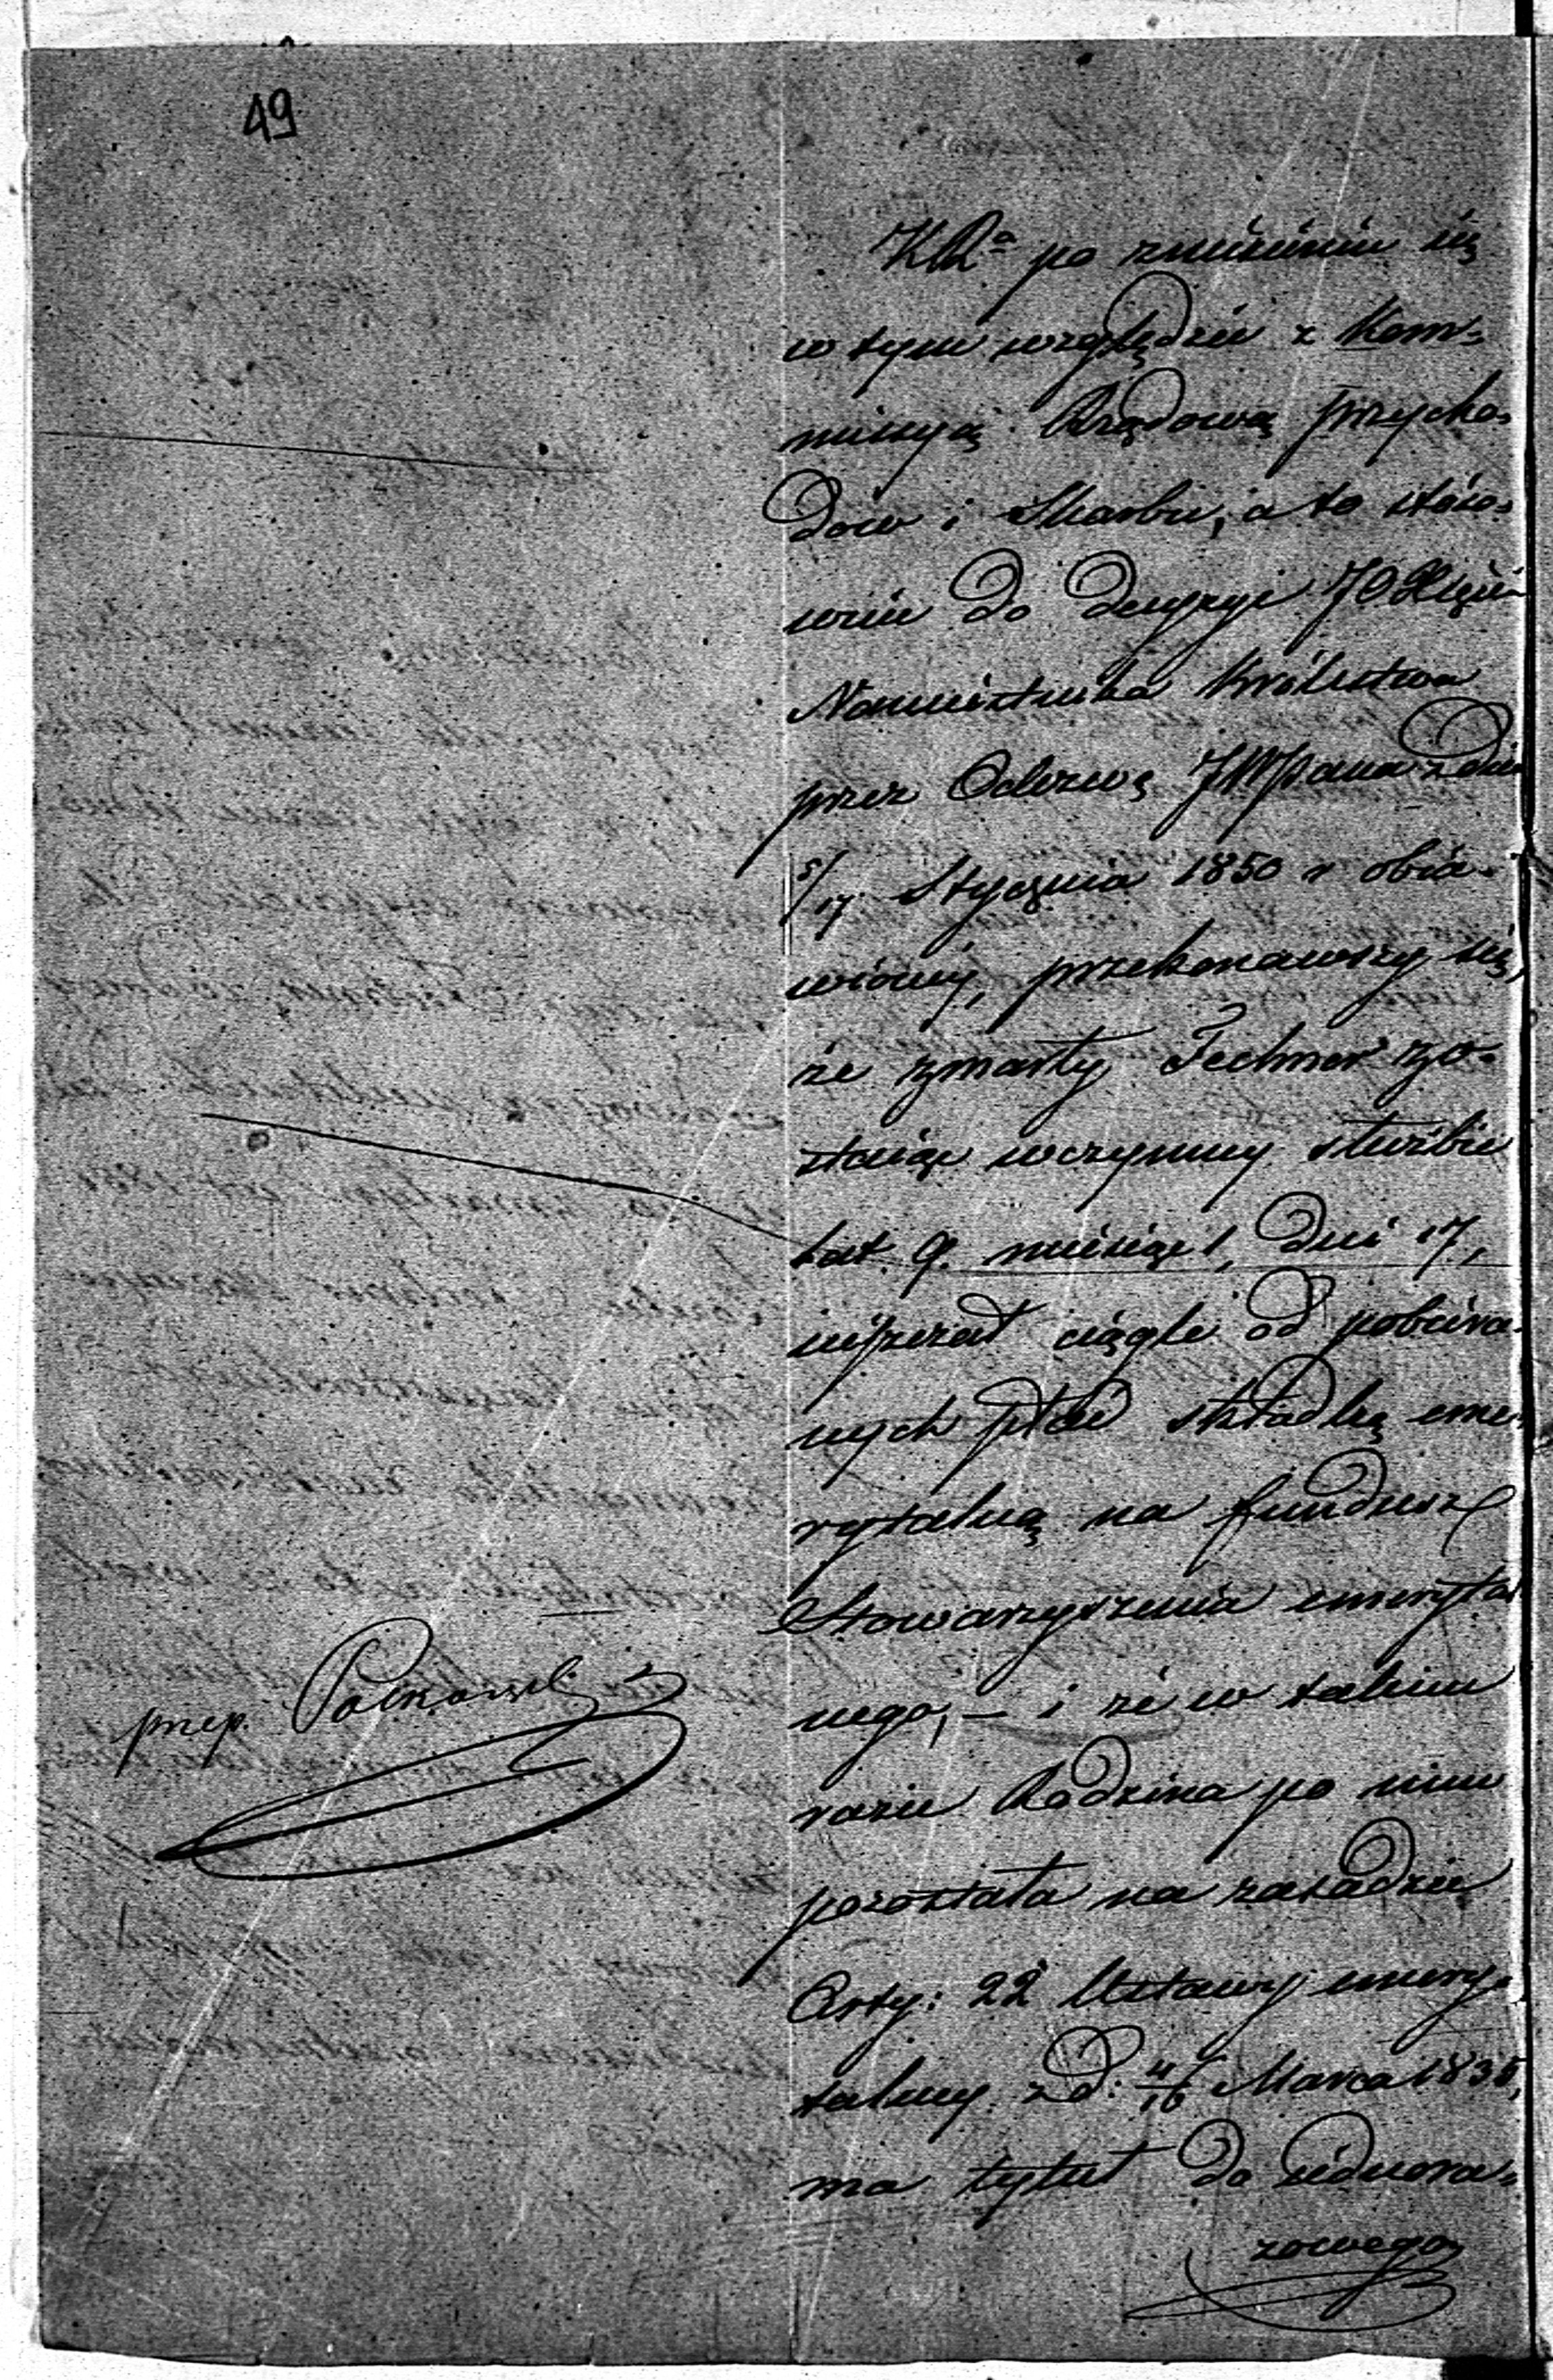 49
KRa po zniesieniu się
w tym względzie z Kom=
missyą Rządową przycho=
dów i Skarbu, a to stóso=
wnie do decyzyi JO Xięcia
Namiestnika Królestwa
przez Odezwę JWPana z dnia
5/17 Stycznia 1850 r obia=
wionéj, przekonawszy się,
że zmarły Fechner zo=
staiąc w czynney służbie
lat. 9. miesiąc 1, dni 17,
uiszczał ciągle od pobiera=
nych płac składkę eme=
rytalną na fundusz
Stowarzyszenia emerytal
nego, — i że w takim
razie Rodzina po nim
pozostała na zasadzie
Arty: 22 Ustawy emery=
talney z d: 4/16 Marca 183
ma tytuł do iednora=
zowego
przep.